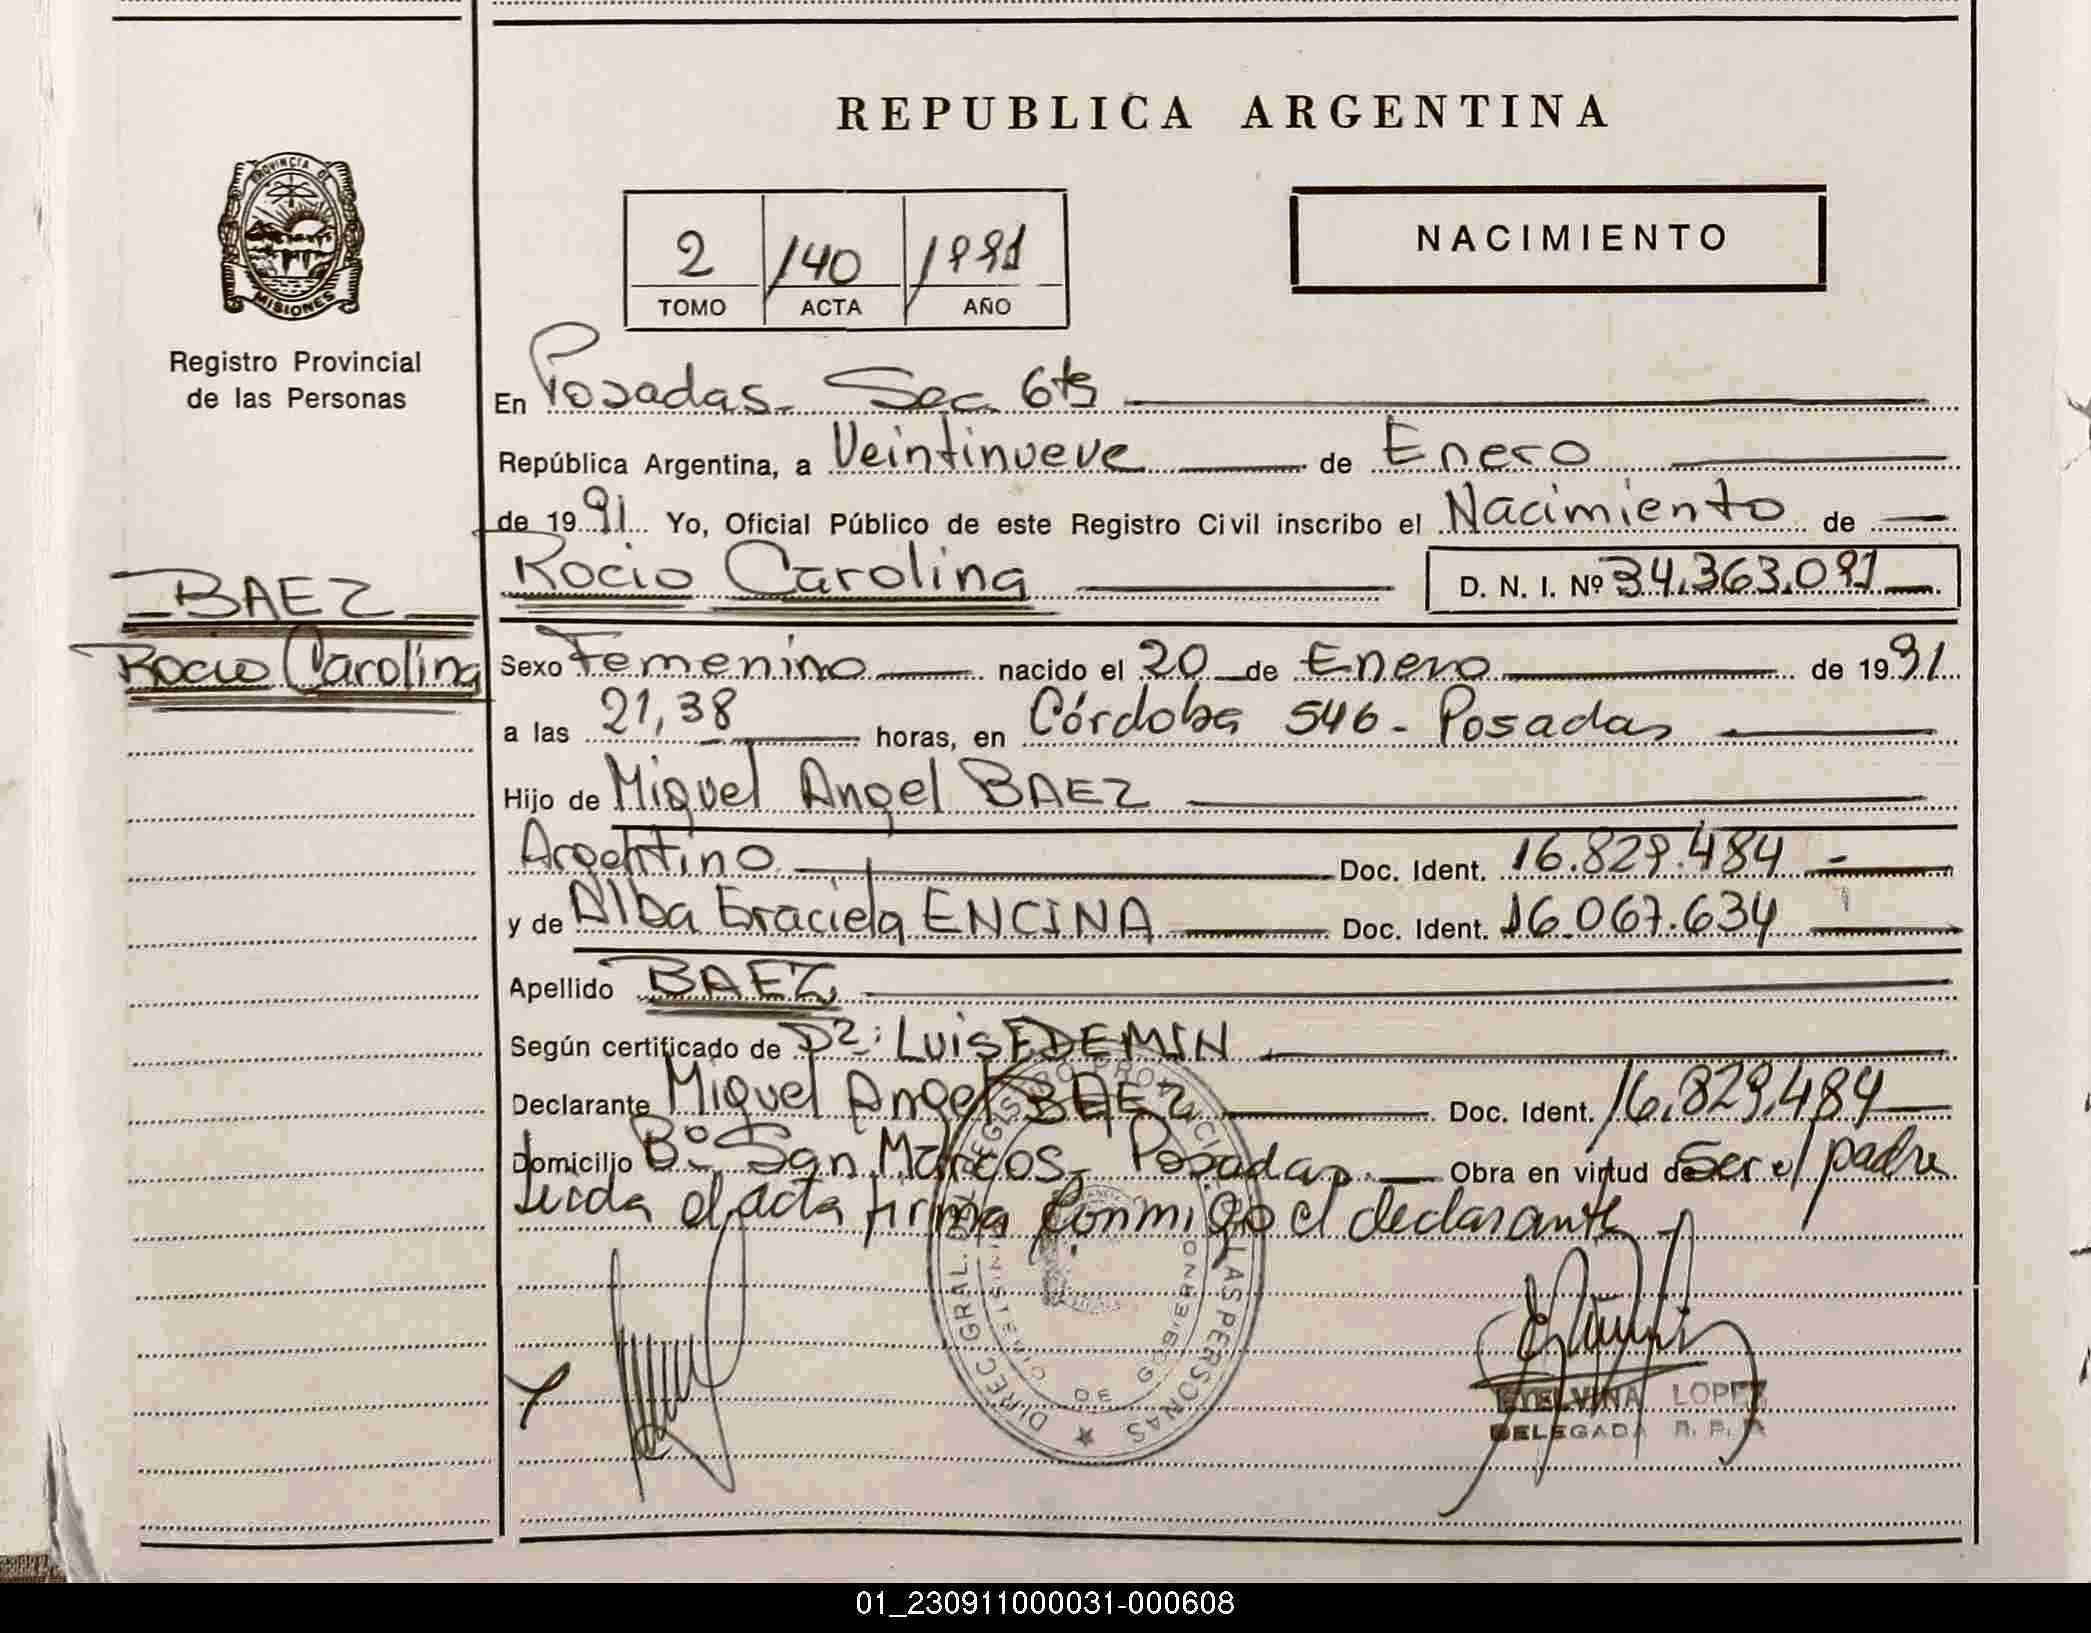 REPUBLICA ARGENTINA
PROVINCIA DE
MISIONES
Registro Provincial
de las Personas
2 140 1991
TOMO ACTA AÑO
NACIMIENTO
En Posadas - Sec 6ta
República Argentina, a Veintinueve de Enero
de 1991 Yo, Oficial Público de este Registro Civil inscribo el Nacimiento de
Rocio Carolina D. N. I. Nº 34.363.091
BAEZ
Rocio Carolina
Sexo Femenino nacido el 20 de Enero de 1991
a las 21,38 horas, en Córdoba 546 - Posadas
Hijo de Miguel Angel BAEZ
Argentino Doc. Ident. 16.829.484
y de Alba Graciela ENCINA Doc. Ident. 16.067.634
Apellido BAEZ
Según certificado de Dr: Luis EDEMIN
Declarante Miguel Angel BAEZ Doc. Ident. 16.829.484
Domicilio Bº San Marcos - Posadas Obra en virtud de ser el padre
Leida el acta firma conmigo el declarante
DIREC. GRAL. DEL REGISTRO PROVINCIAL DE LAS PERSONAS
MINISTERIO DE GOBIERNO
ETELVINA LOPEZ
DELEGADA R. P. P.
01_230911000031-000608